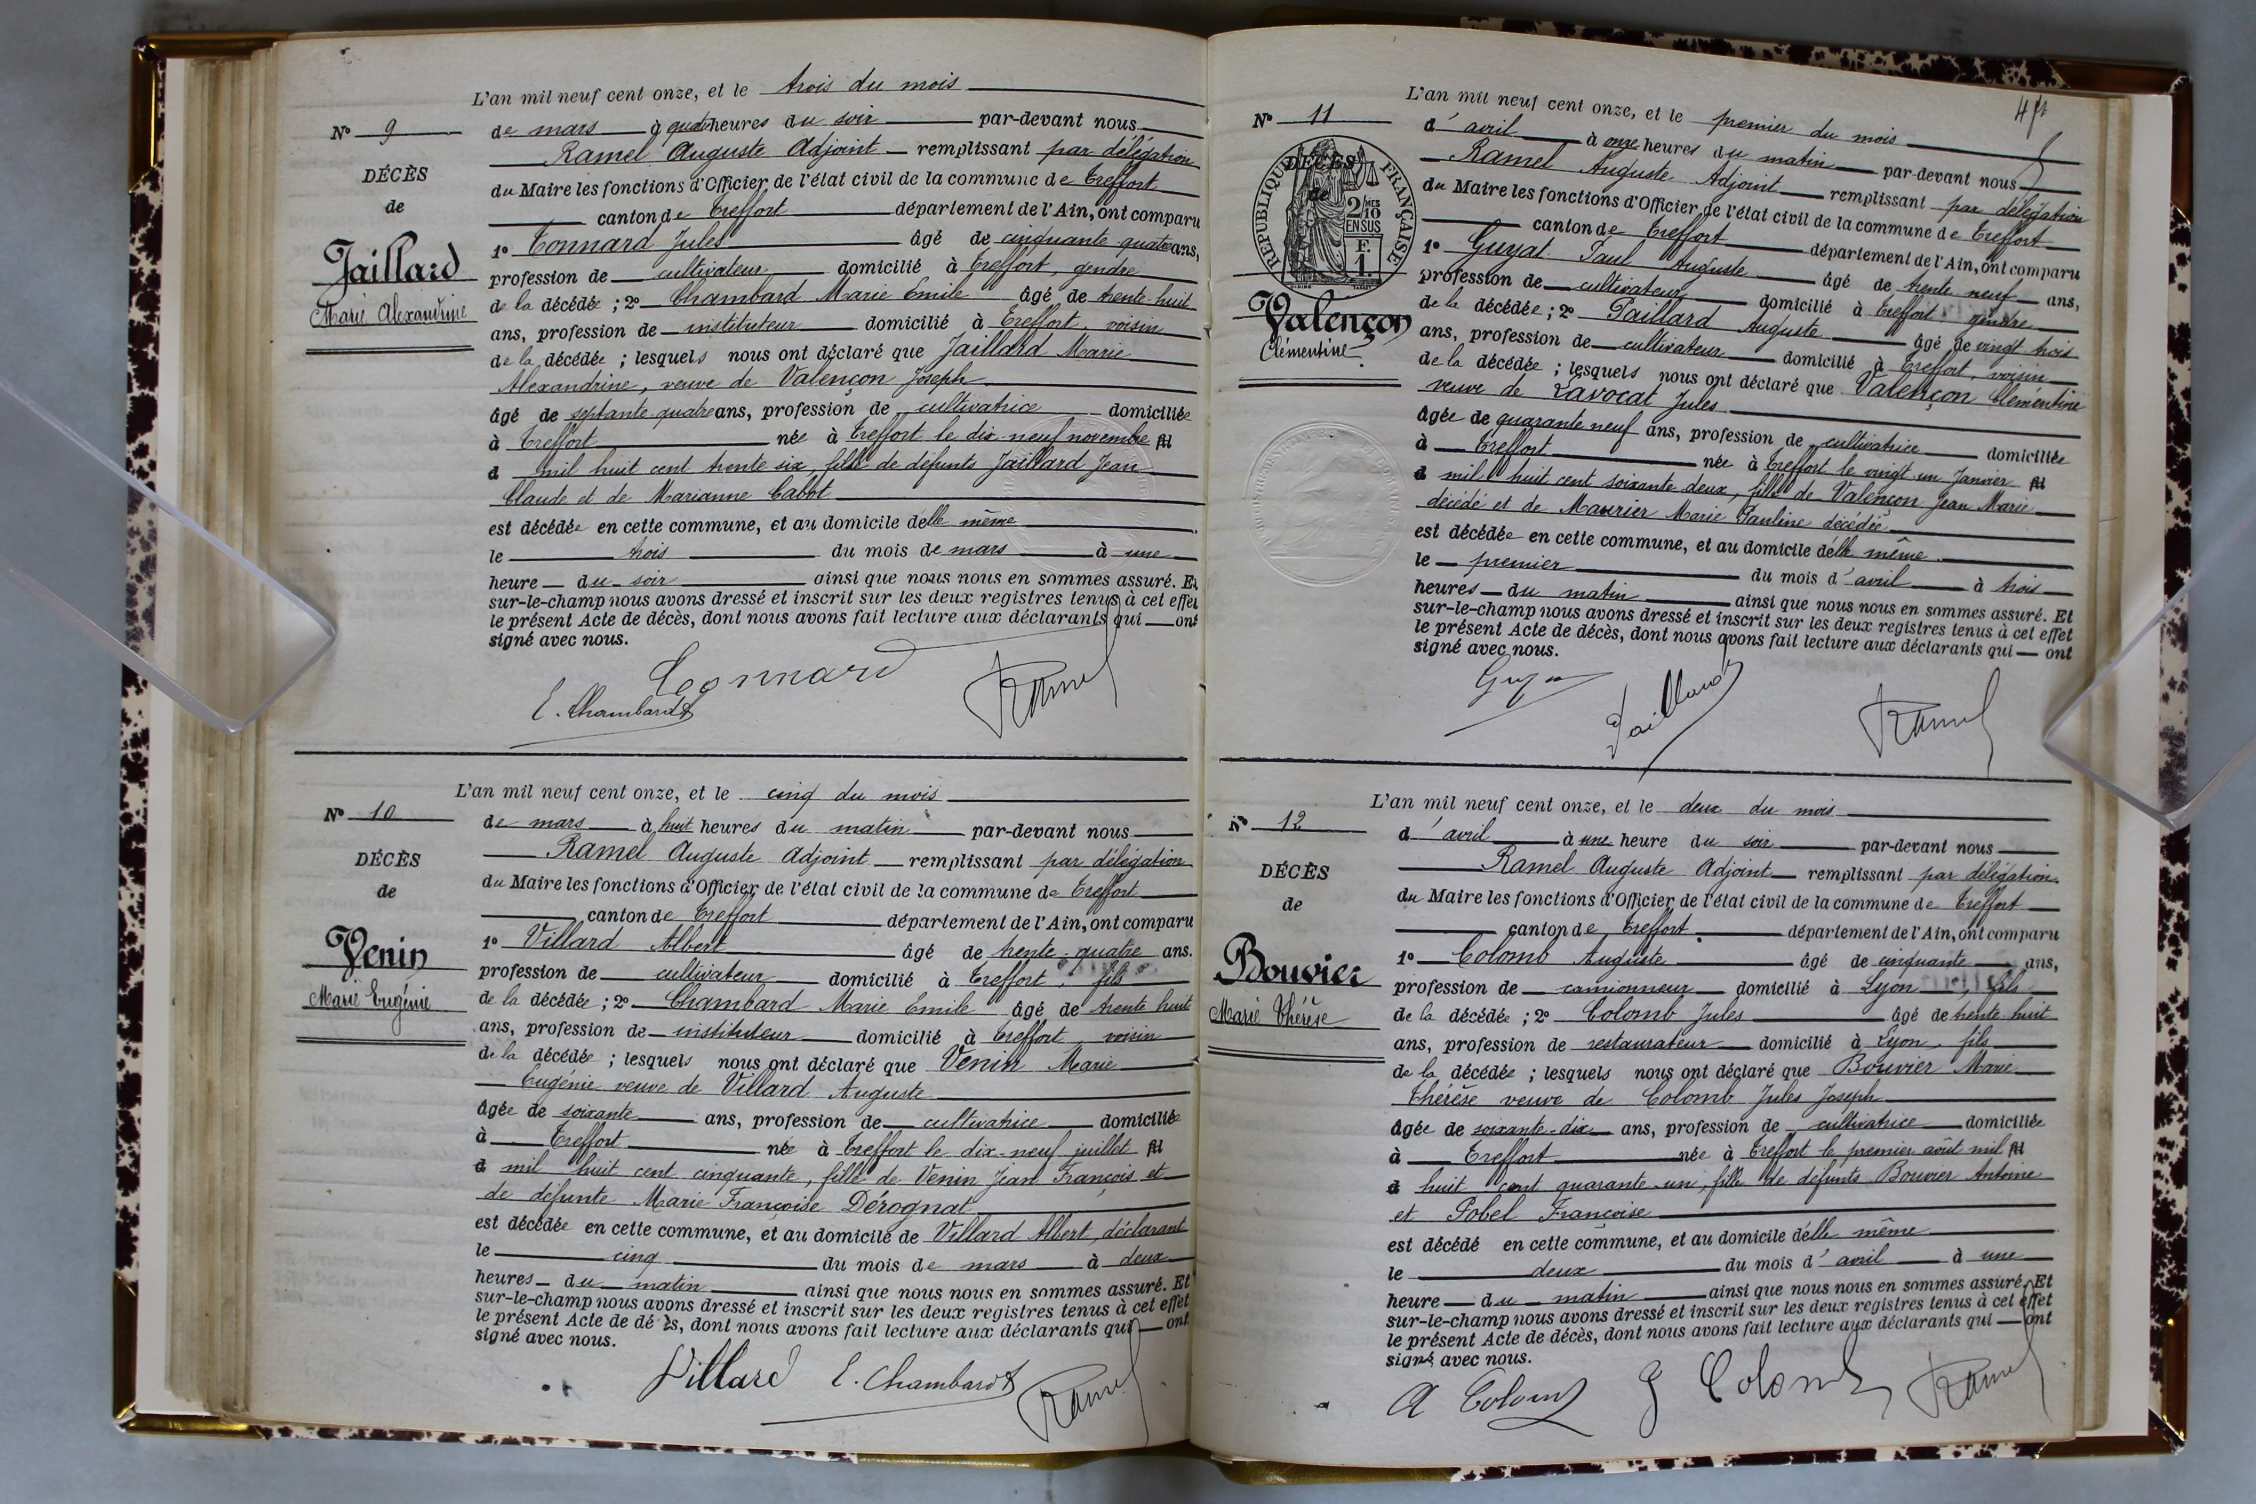 L'an mil neuf cent onze, et le trois du mois
N° 9
de mars à quatre heures du soir par-devant nous
Ramel Auguste Adjoint remplissant par délégation
DÉCÈS
du Maire les fonctions d'Officier de l'état civil de la commune de Treffort
de
canton de Treffort département de l'Ain, ont comparu
Jaillard
Marie Alexandrine
1° Tonnard Jules âgé de cinquante quatre ans,
profession de cultivateur domicilié à Treffort, gendre
de la décédée ; 2° Chambard Marie Emile âgé de trente-huit
ans, profession de instituteur domicilié à Treffort, voisin
de la décédée ; lesquels nous ont déclaré que Jaillard Marie
Alexandrine, veuve de Valençon Joseph
âgé de septante quatre ans, profession de cultivatrice domiciliée
à Treffort née à Treffort le dix-neuf novembre fil
d mil huit cent trente six, fille de défunts Jaillard Jean
Claude et de Marianne Cabot
est décédée en cette commune, et au domicile d'elle même
le trois du mois de mars à une
heure du soir ainsi que nous nous en sommes assuré. Et
sur-le-champ nous avons dressé et inscrit sur les deux registres tenus à cet effet
le présent Acte de décès, dont nous avons fait lecture aux déclarants qui ont
signé avec nous.
Tonnard
E. Chambard
Ramel
L'an mil neuf cent onze, et le cinq du mois
N° 10
de mars à huit heures du matin par-devant nous
Ramel Auguste Adjoint remplissant par délégation
DÉCÈS
du Maire les fonctions d'Officier de l'état civil de la commune de Treffort
de
canton de Treffort département de l'Ain, ont comparu
Venin
Marie Eugénie
1° Villard Albert âgé de trente-quatre ans.
profession de cultivateur domicilié à Treffort, fils
de la décédée ; 2° Chambard Marie Emile âgé de trente huit
ans, profession de instituteur domicilié à Treffort voisin
de la décédée ; lesquels nous ont déclaré que Venin Marie
Eugénie veuve de Villard Auguste
âgée de soixante ans, profession de cultivatrice domiciliée
à Treffort née à Treffort le dix-neuf juillet fil
d mil huit cent cinquante, fille de Venin Jean François et
de défunte Marie Françoise Dérognat
est décédée en cette commune, et au domicile de Villard Albert, déclarant
le cinq du mois de mars à deux
heures du matin ainsi que nous nous en sommes assuré. Et
sur-le-champ nous avons dressé et inscrit sur les deux registres tenus à cet effet
le présent Acte de décès, dont nous avons fait lecture aux déclarants qui ont
signé avec nous.
Villard E. Chambard Ramel
L'an mil neuf cent onze, et le premier du mois
N° 11
d'avril à onze heures du matin par-devant nous
Ramel Auguste Adjoint remplissant par délégation
DÉCÈS
de
RÉPUBLIQUE FRANÇAISE
2/10
EN SUS
F.
1.
du Maire les fonctions d'Officier de l'état civil de la commune de Treffort
canton de Treffort département de l'Ain, ont comparu
Valençon
Clémentine
1° Guyat Paul Auguste âgé de trente neuf ans,
profession de cultivateur domicilié à Treffort gendre
de la décédée ; 2° Paillard Auguste âgé de vingt trois
ans, profession de cultivateur domicilié à Treffort, voisin
de la décédée ; lesquels nous ont déclaré que Valençon Clémentine
veuve de Lavocat Jules
âgée de quarante neuf ans, profession de cultivatrice domiciliée
à Treffort née à Treffort le vingt-un Janvier fil
d mil huit cent soixante deux, fille de Valençon Jean Marie
décédé et de Maurier Marie Pauline décédée
est décédée en cette commune, et au domicile d'elle même
le premier du mois d'avril à trois
heures du matin ainsi que nous nous en sommes assuré. Et
sur-le-champ nous avons dressé et inscrit sur les deux registres tenus à cet effet
le présent Acte de décès, dont nous avons fait lecture aux déclarants qui ont
signé avec nous.
Paillard
Ramel
L'an mil neuf cent onze, et le deux du mois
N° 12
d'avril à une heure du soir par-devant nous
Ramel Auguste Adjoint remplissant par délégation
DÉCÈS
du Maire les fonctions d'Officier de l'état civil de la commune de Treffort
de
canton de Treffort département de l'Ain, ont comparu
Bouvier
Marie Thérèse
1° Colomb Auguste âgé de cinquante ans,
profession de camionneur domicilié à Lyon, fils
de la décédée ; 2° Colomb Jules âgé de trente-huit
ans, profession de restaurateur domicilié à Lyon, fils
de la décédée ; lesquels nous ont déclaré que Bouvier Marie
Thérèse veuve de Colomb Jules Joseph
âgée de soixante-dix ans, profession de cultivatrice domiciliée
à Treffort née à Treffort le premier août mil fil
d huit cent quarante-un, fille de défunts Bouvier Antoine
et Gobel Françoise
est décédé en cette commune, et au domicile d'elle même
le deux du mois d'avril à une
heure du matin ainsi que nous nous en sommes assuré. Et
sur-le-champ nous avons dressé et inscrit sur les deux registres tenus à cet effet
le présent Acte de décès, dont nous avons fait lecture aux déclarants qui ont
signé avec nous.
A Colomb J Colomb Ramel